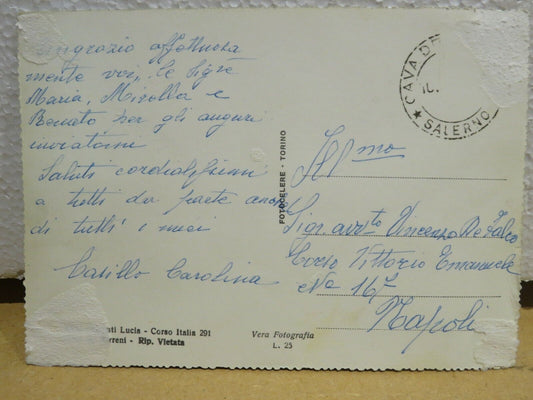 ringrazio affettuosa
mente voi, le Sigre
Maria, Mirella e
Renato per gli auguri
inviatomi
Saluti cordialissimi
a tutti da parte anche
di tutti i miei
Casillo Carolina
FOTOCELERE - TORINO
CAVA DE
IL.
★ SALERNO
Ill mo
Sign. avv.to Vincenzo De Falco
Corso Vittorio Emanuele
No 167
Napoli
ti Lucia - Corso Italia 291
rreni - Rip. Vietata
Vera Fotografia
L. 25